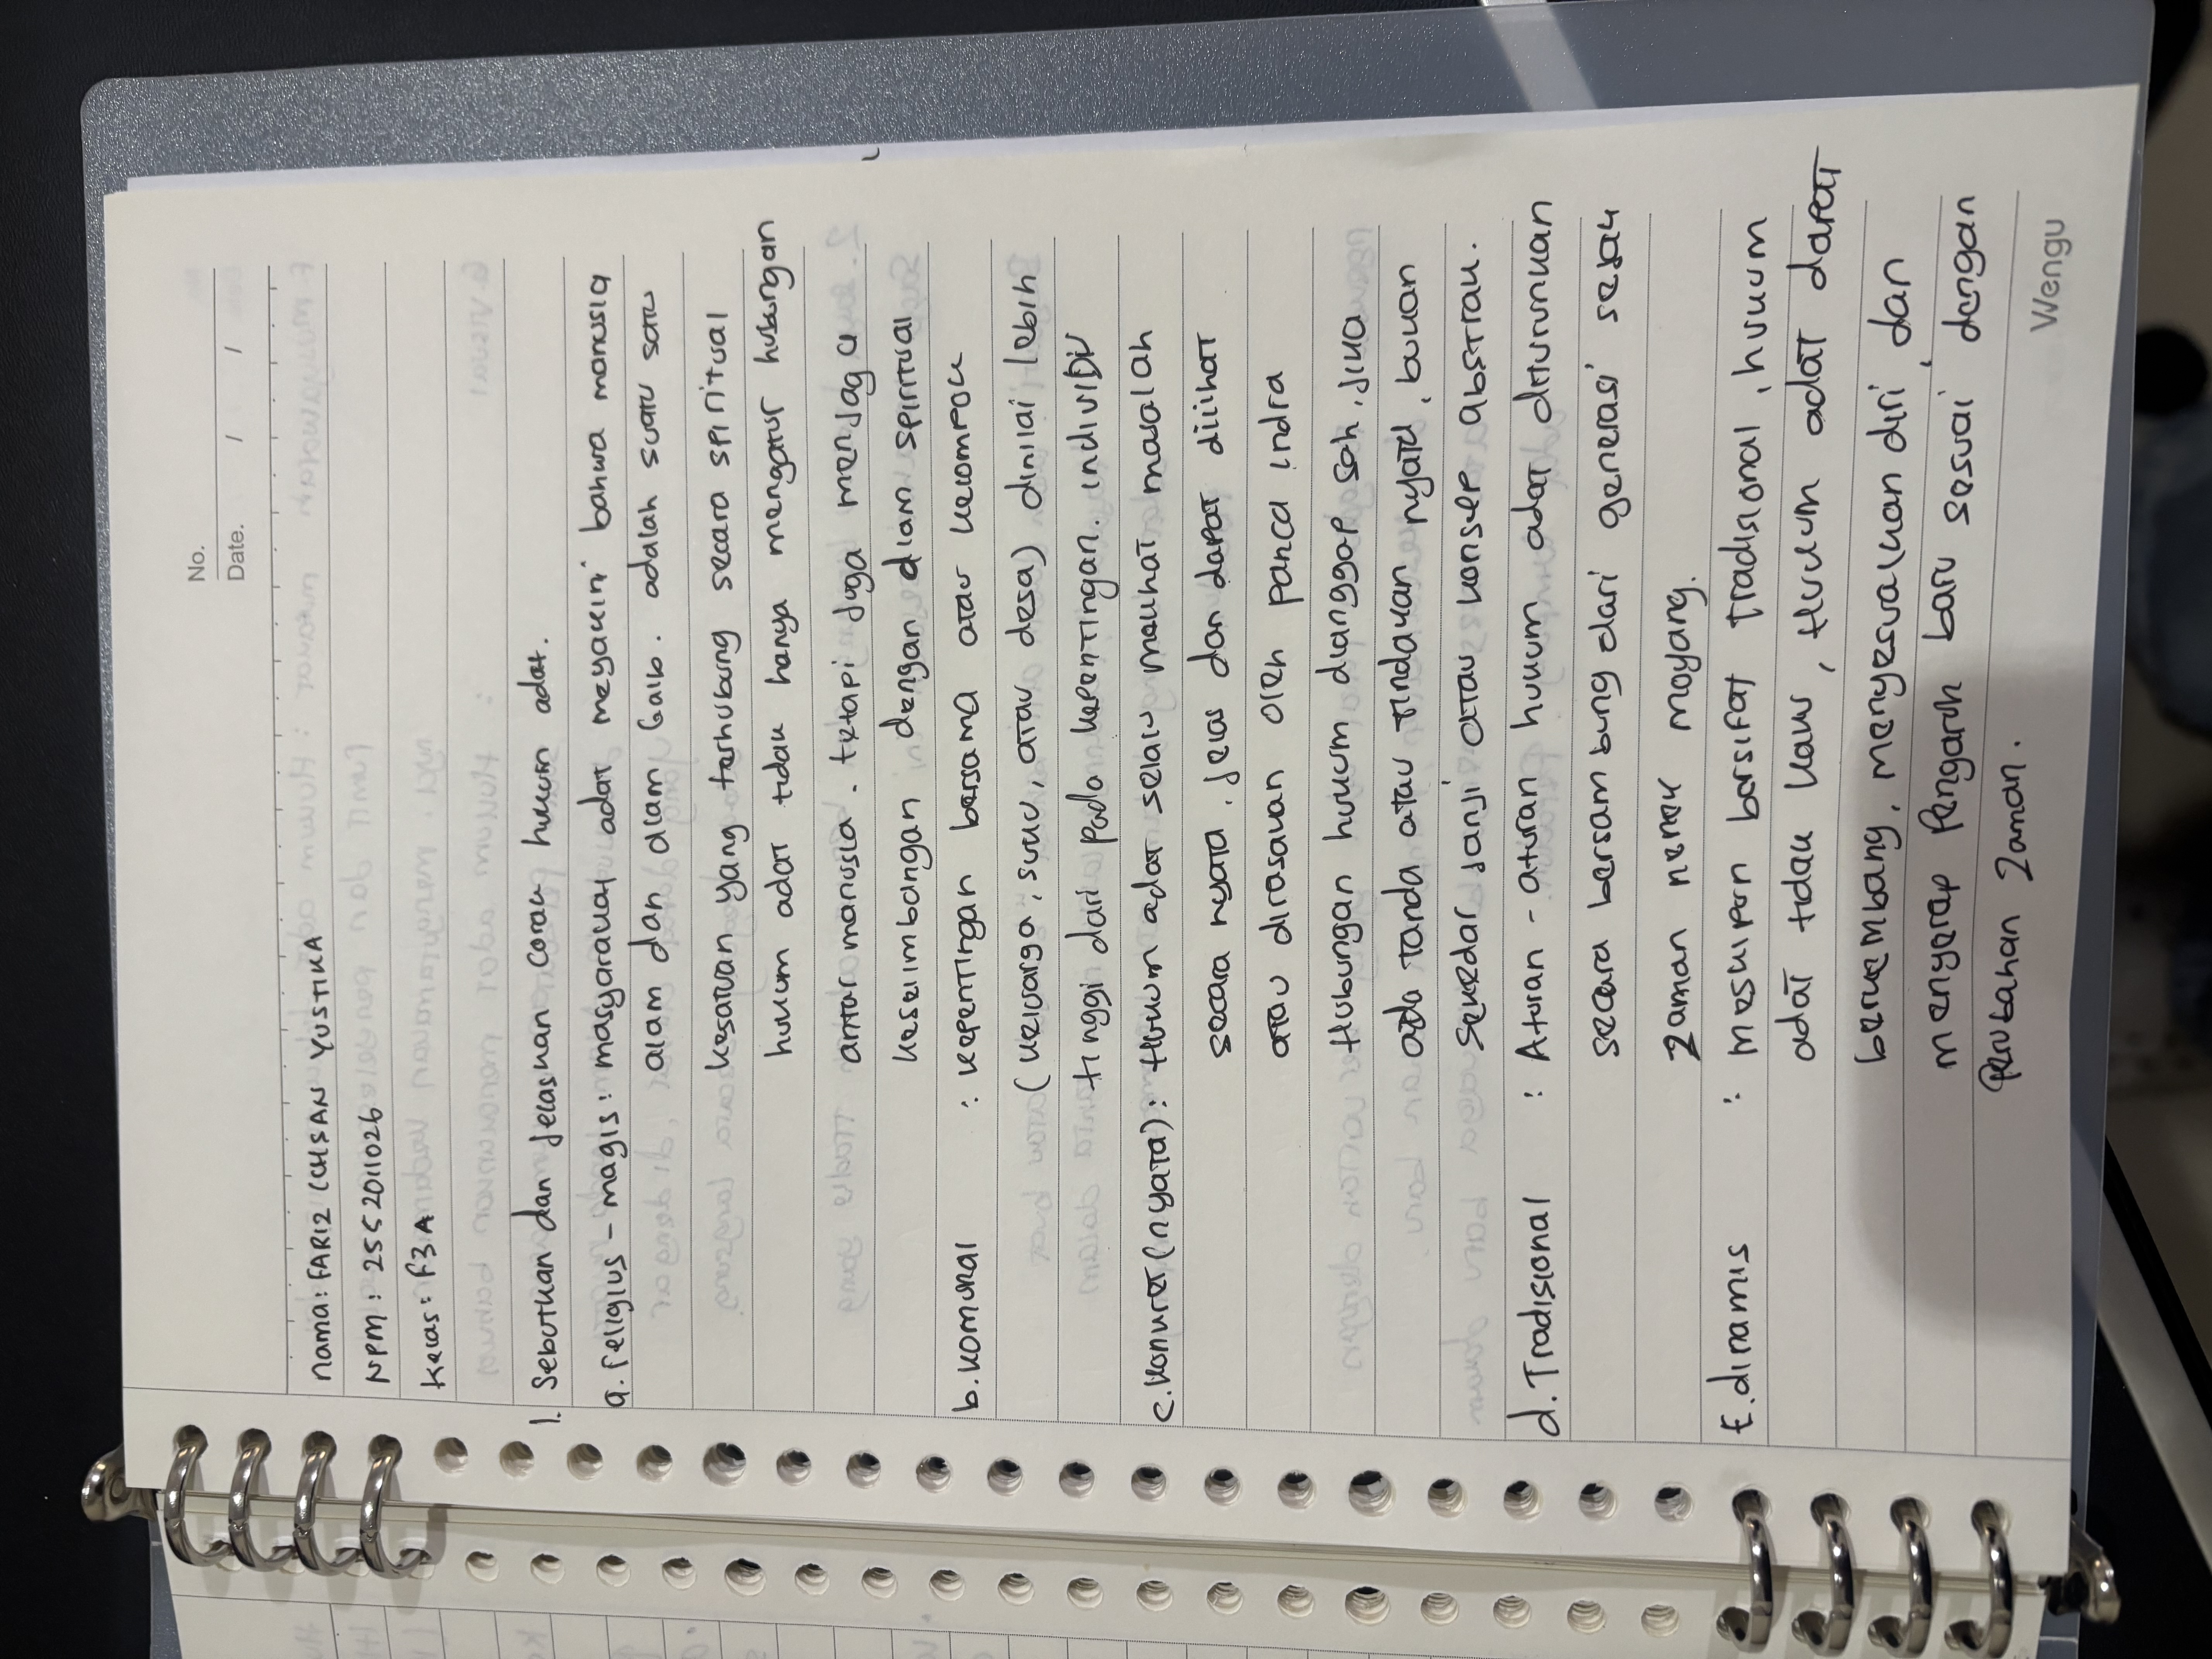 No.
Date. / /
Nama: FARIZ ICHSAN YUSTIKA
NPM: 2552011026
Kelas: F3A
1. Sebutkan dan jelaskan corak hukum adat.
a. religius - magis: masyarakat adat meyakini bahwa manusia
alam dan dlam Gaib. adalah suatu satu
kesatuan yang terhubung secara spiritual
hukum adat tidak hanya mengatur hubungan
antar manusia. tetapi juga menjaga
keseimbangan dengan dlam spiritual
b. komunal : kepentingan bersama atau kelompok
(keluarga, suku, atau desa) dinilai lebih
tinggi dari pada kepentingan individu
c. konkret (nyata): Hukum adat selalu melihat masalah
secara nyata, jelas dan dapat dilihat
atau dirasakan oleh panca indra
Hubungan hukum dianggap sah, jika
ada tanda atau tindakan nyata, bukan
sekedar janji atau konsep abstrak.
d. Tradisional : Aturan - aturan hukum adat diturunkan
secara bersambung dari generasi sejak
zaman nenek moyang.
E. dinamis : meskipun bersifat tradisional, hukum
adat tidak kaku, Hukum adat dapat
berkembang, menyesuaikan diri, dan
menyerap pengaruh baru sesuai dengan
perubahan zaman.
Wengu